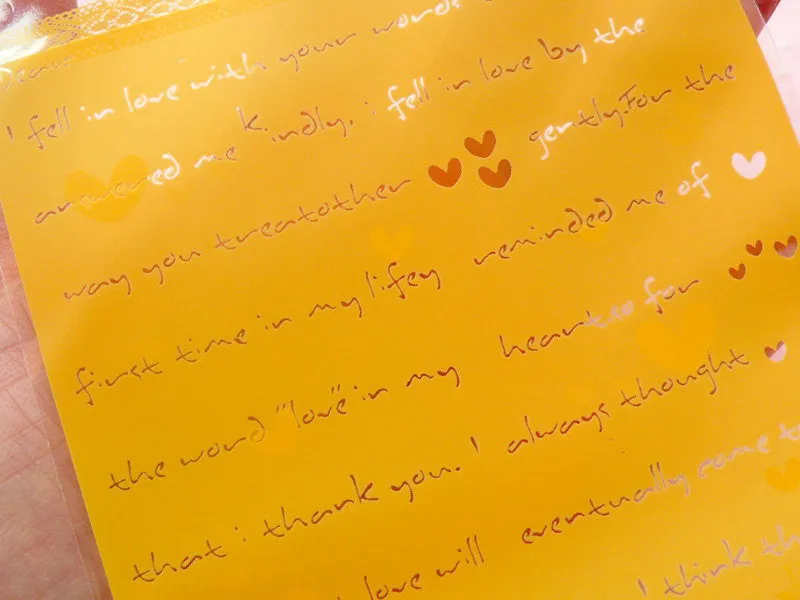 Dear
I fell in love with your words
answered me kindly. i fell in love by the
way you treatother gently.For the
first time in my lifey reminded me of
the word "love" in my heartso for
that i thank you. I always thought
love will eventually come to
I think